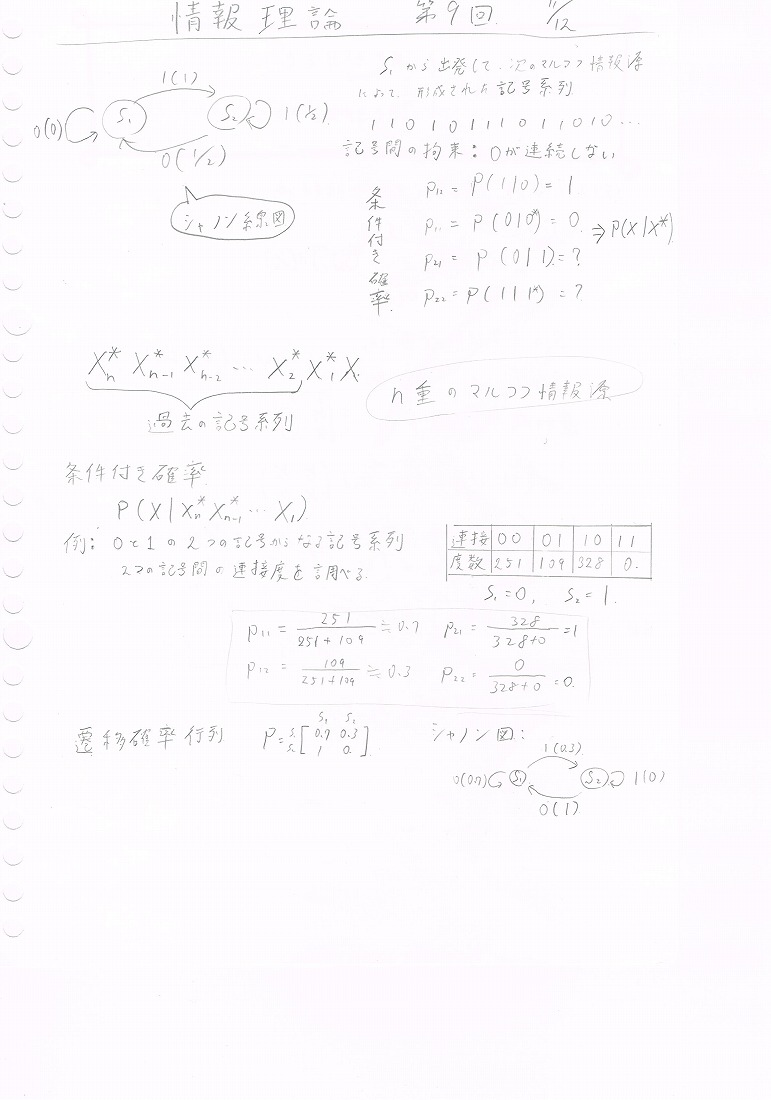 情報理論 第9回 11/12
S₁から出発して、次のマルコフ情報源
によって、形成された記号系列
1 1 0 1 0 1 1 1 0 1 1 0 1 0 …
記号間の拘束：0が連続しない
1(1)
0(0) S₁ S₂ 1(1/2)
0(1/2)
シャノン線図
条件付き確率
P₁₂ = P(1|0) = 1
P₁₁ = P(0|0*) = 0. ⇒ P(X|X*)
P₂₁ = P(0|1) = ?
P₂₂ = P(1|1*) = ?
Xₙ* Xₙ₋₁* Xₙ₋₂* … X₂* X₁* X.
過去の記号系列
n重のマルコフ情報源
条件付き確率
P(X|Xₙ* Xₙ₋₁* … X₁)
例：0と1の2つの記号からなる記号系列
2つの記号間の連接度を調べる.
連接 00 01 10 11
度数 251 109 328 0.
S₁=0, S₂=1.
P₁₁ = 251/(251+109) ≒ 0.7 P₂₁ = 328/(328+0) = 1
P₁₂ = 109/(251+109) ≒ 0.3 P₂₂ = 0/(328+0) = 0.
遷移確率行列 P =
S₁ S₂
S₁ [0.7 0.3
S₂ 1 0.]
シャノン図：
1(0.3)
0(0.7) S₁ S₂ 1(0)
0(1)